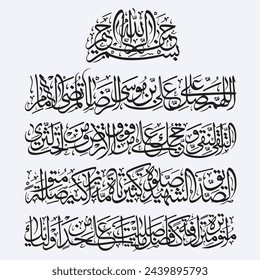 بسم الله الرحمن الرحيم
اللهم صل على علي بن موسى الرضا المرتضى الإمام
التقي النقي وحجتك على من فوق الأرض ومن تحت الثرى
الصديق الشهيد صلوة كثيرة تامة زاكية متواصلة
متواترة مترادفة كأفضل ما صليت على أحد من أوليائك
shutterstock.com · 2439895793